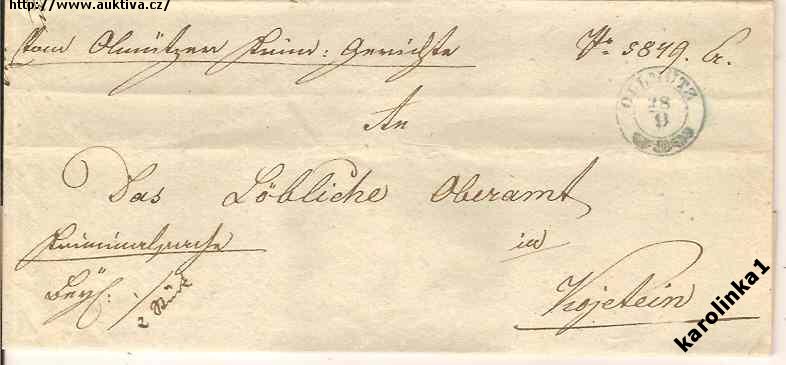 http://www.auktiva.cz/
Vom Olmützer Krim: Gerichte Nr 5849. Cr.
OLLMÜTZ
28
9
An
Das Löbliche Oberamt
Kriminalsache in
Beyl: 2 Stück Kojetein
karolinka1